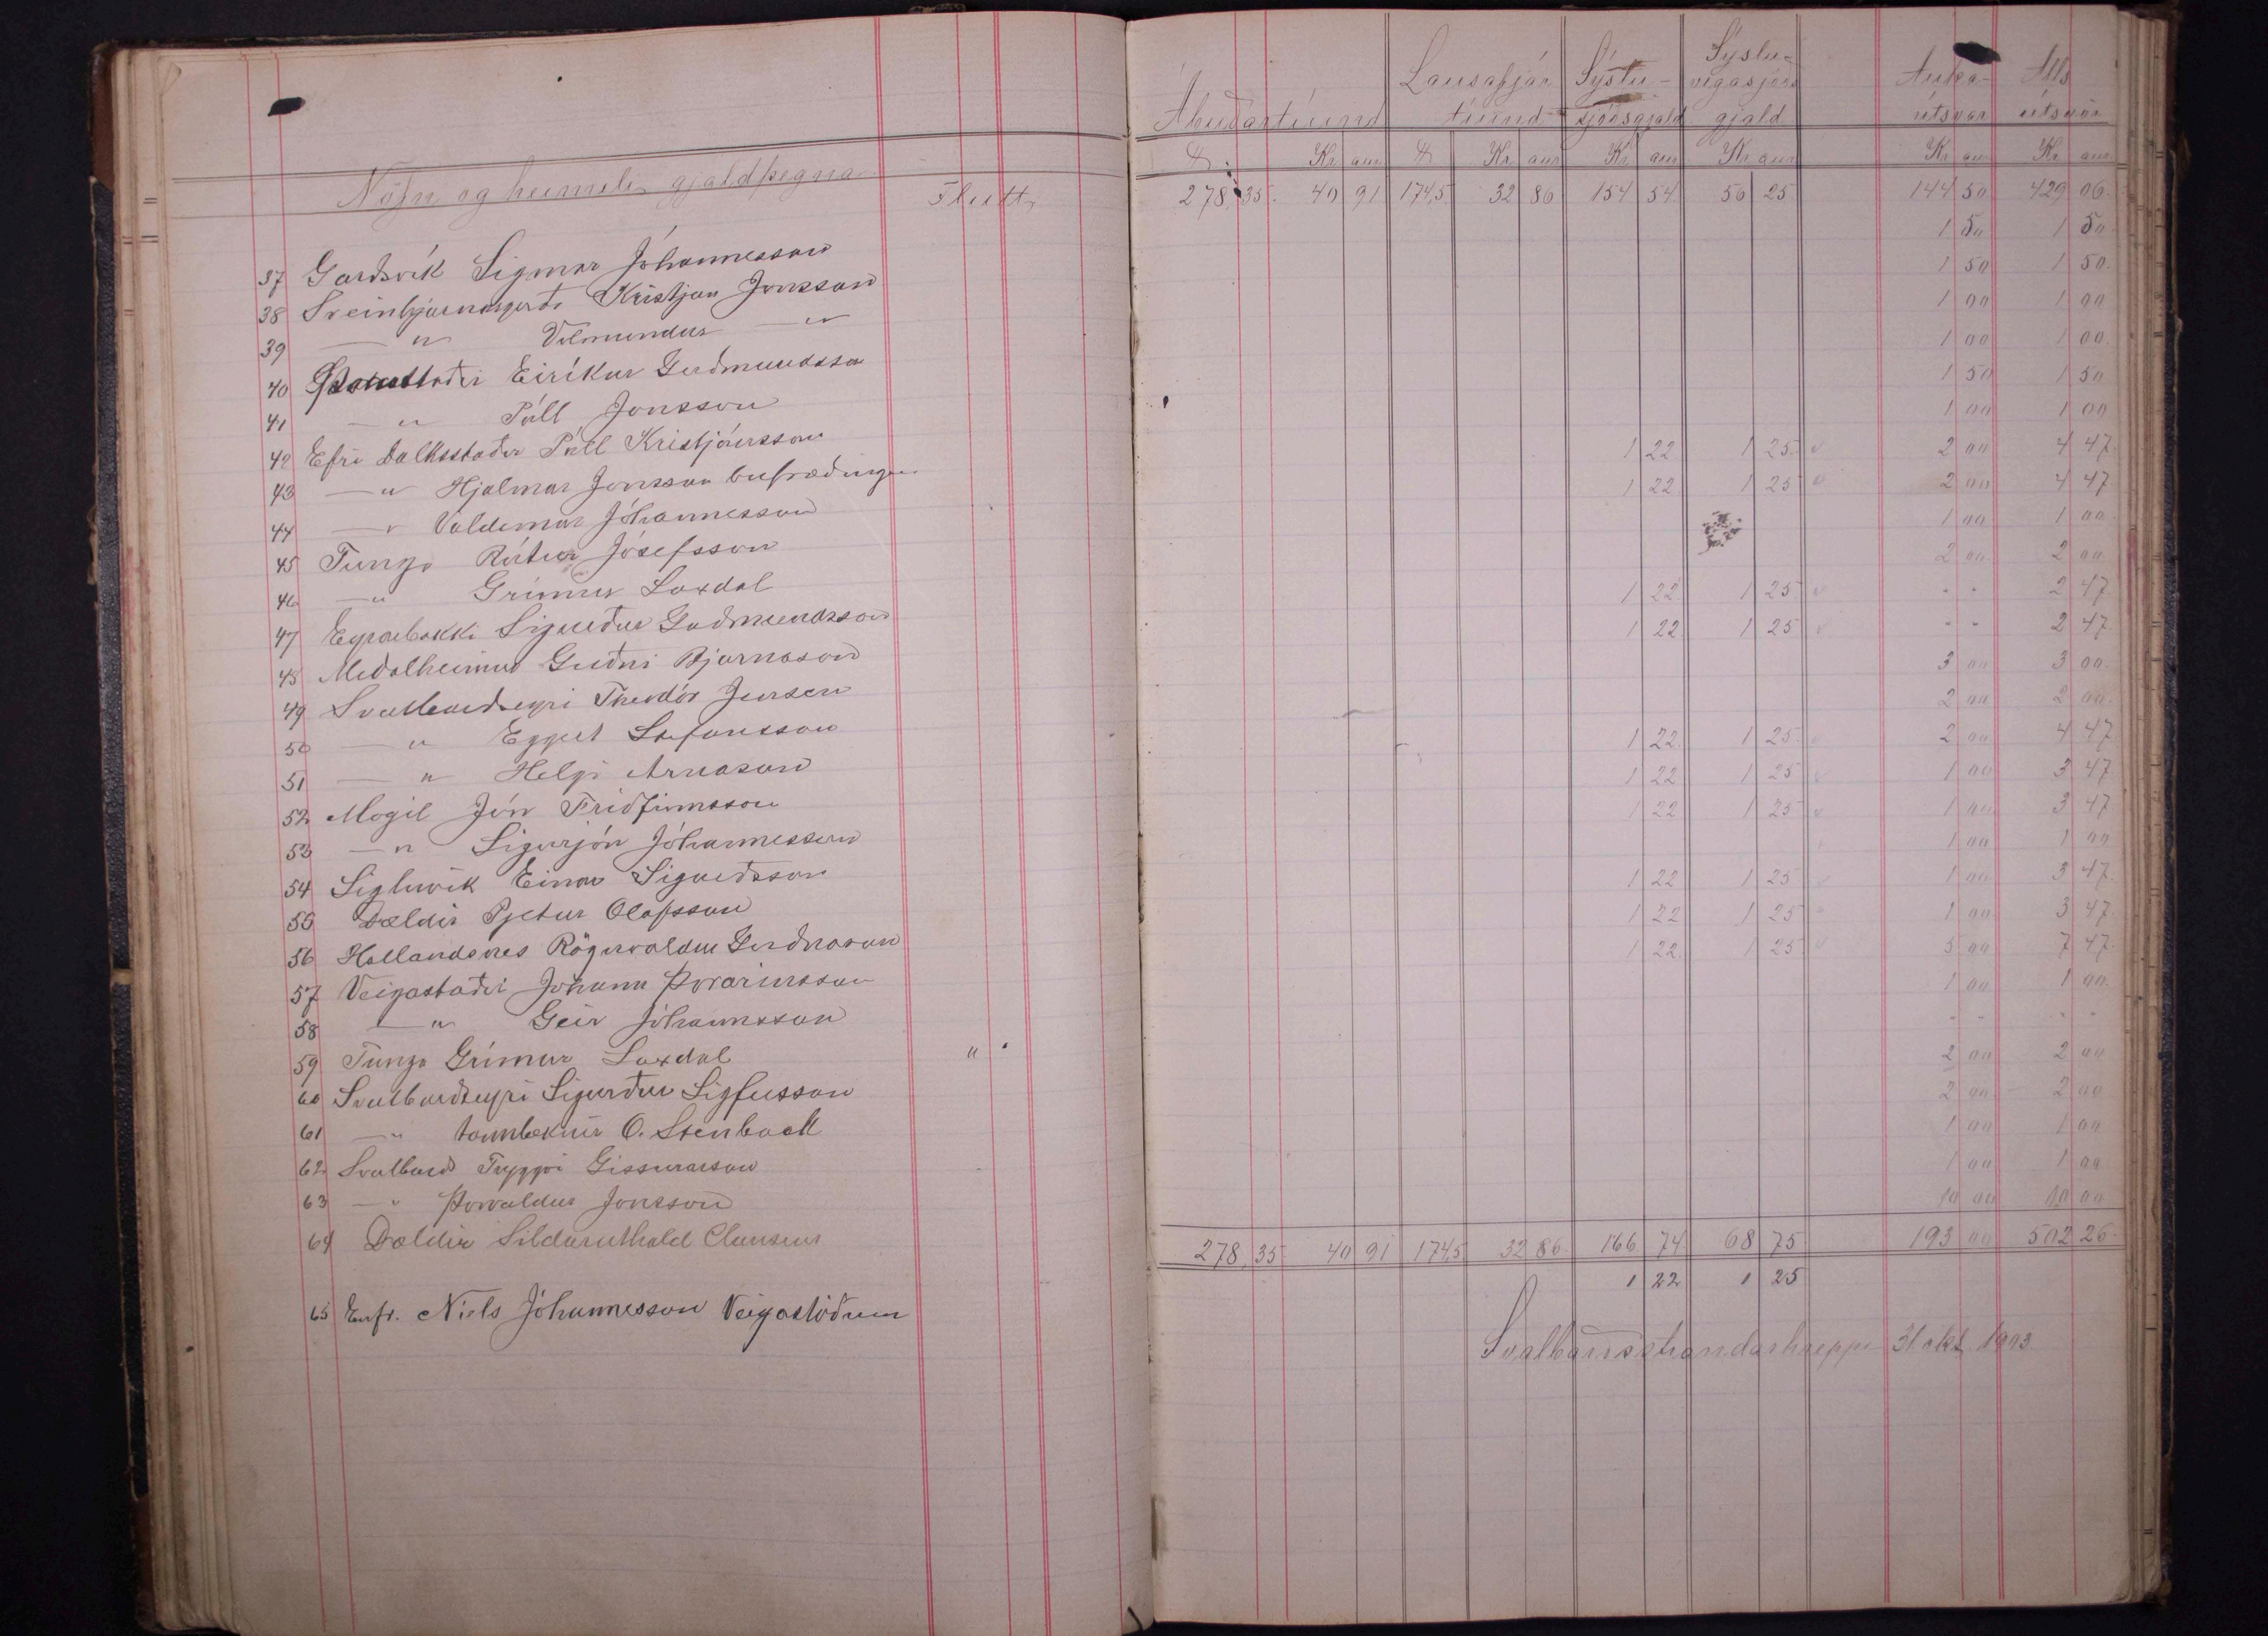 Nöfn og heimili gjaldþegna
Flutt
37 Gardsvík Sigmar Jóhannesson
38 Sveinbjarnargerdi Kristjan Jonsson
39 — " Vilmundur — "
40 Eiríkur Gudmundsson
41 — " Páll Jonsson
42 Efri Dalksstadir Páll Kristjánsson
43 — " Hjalmar Jonsson bufrædingur
44 — " Valdemar Jóhannesson
45 Tunga Rútur Jósefsson
46 — " Grímur Laxdal
47 Eyrarbakki Sigurdur Gudmundsson
48 Medalheimur Gudni Bjarnason
49 Svalbardseyri Theodór Jensen
50 — " Eggert Stefansson
51 — " Helgi Arnason
52 Mogil Jón Fridfinnsson
53 — " Sigurjón Jóhannesson
54 Sigluvík Einar Sigurdsson
55 Dældir Pjetur Olafsson
56 Hallandsnes Rögnvaldur Gudnason
57 Veigastadir Johann Þorarinsson
58 — " Geir Jóhannsson
59 Tunga Grímur Laxdal "
60 Svalbardseyri Sigurdur Sigfusson
61 — " tannlæknir O. Stenback
62 Svalbard Tryggvi Gissurarson
63 — " Þorvaldur Jonsson
64 Dældir Sildaruthald Clausens
65 Enfr. Niels Jóhannesson Veigastödum
Ábúðartíund Lausafjár tíund Sýslu-sjóðsgjald Sýslu-vegasjóðs gjald Auka-útsvar Alls útsvör
Kr aur Kr aur Kr aur Kr aur Kr aur Kr aur
278,35 40 91 174,5 32 86 154 54 56 25 144 50 429 06
1 50 1 50
1 50 1 50
1 00 1 00
1 00 1 00
1 50 1 50
1 00 1 00
1 22 1 25 2 00 4 47
1 22 1 25 2 00 4 47
1 00 1 00
2 00 2 00
1 22 1 25 " " 2 47
1 22 1 25 " " 2 47
3 00 3 00
2 00 2 00
1 22 1 25 2 00 4 47
1 22 1 25 1 00 3 47
1 22 1 25 1 00 3 47
1 00 1 00
1 22 1 25 1 00 3 47
1 22 1 25 1 00 3 47
1 22 1 25 5 00 7 47
1 00 1 00
" " " "
2 00 2 00
2 00 2 00
1 00 1 00
1 00 1 00
10 00 10 00
278,35 40 91 174,5 32 86 166 74 68 75 193 00 502 26
1 22 1 25
Svalbarðsstrandarhreppi 31 okt. 1903